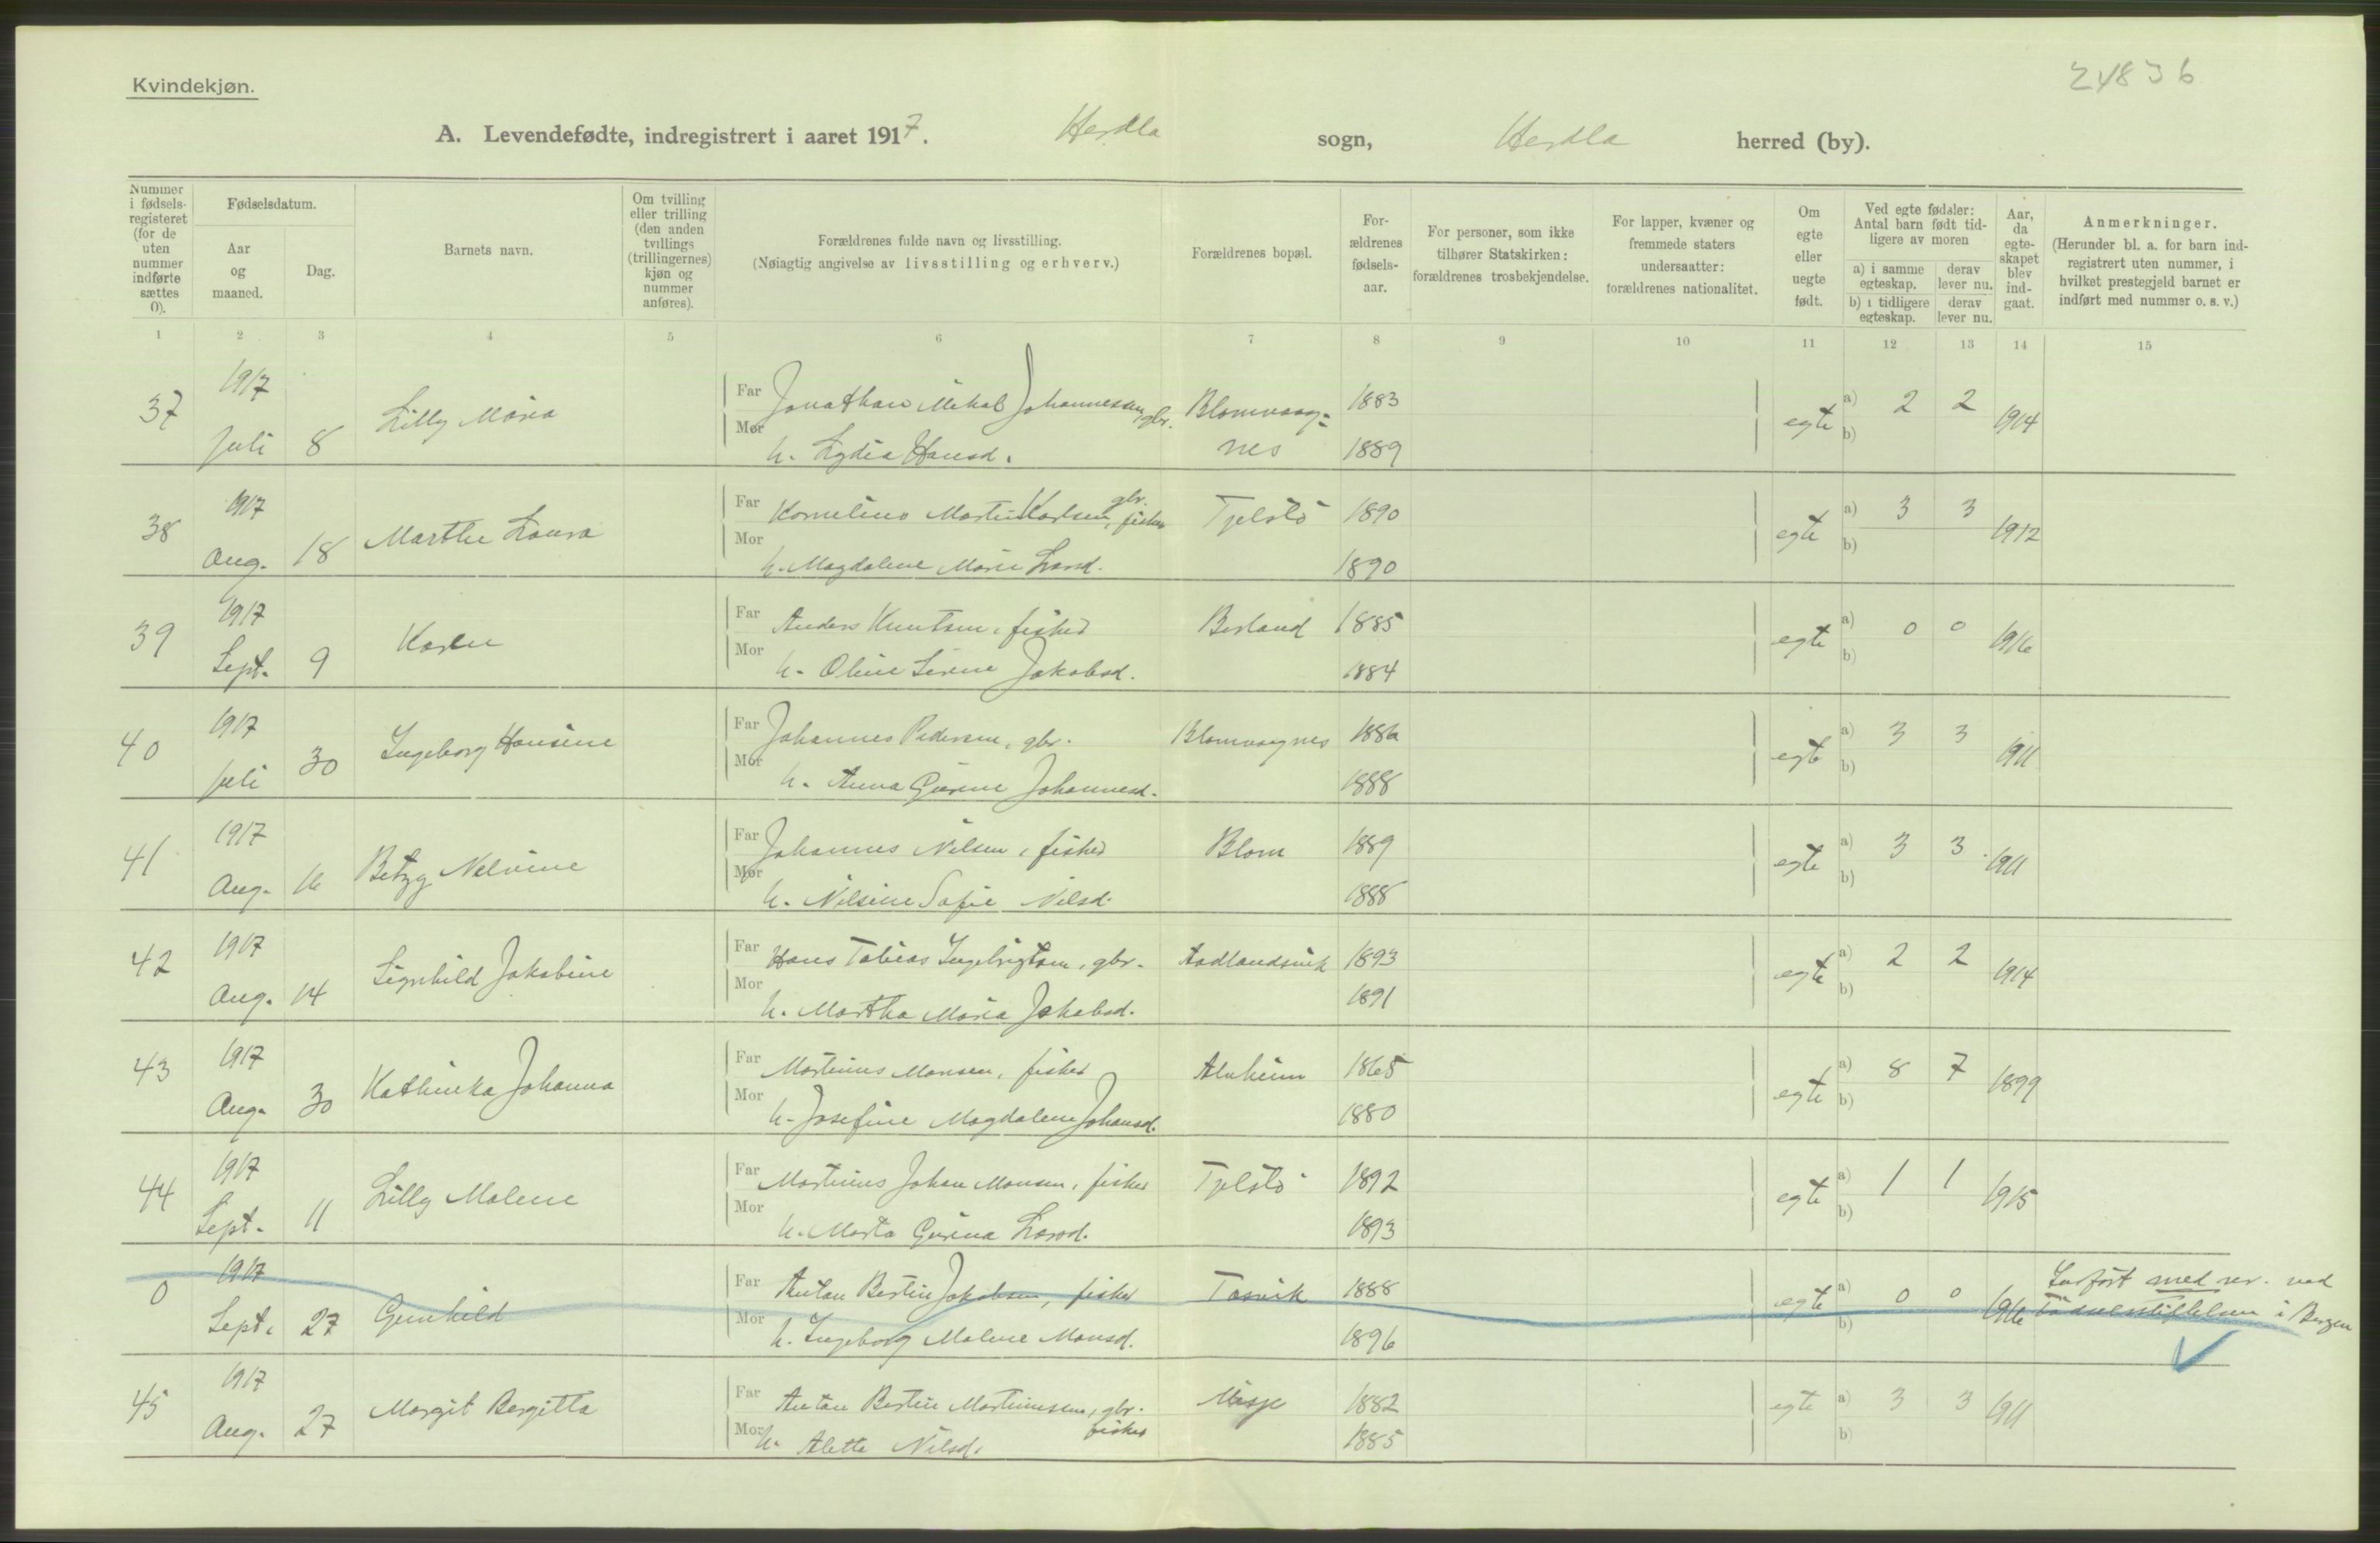 Kvindekjøn.
24836
A. Levendefødte, indregistrert i aaret 1917. Herdla sogn, Herdla herred (by).
Nummer i fødsels-registeret (for de uten nummer indførte sættes 0).
Fødselsdatum.
Aar og maaned.
Dag.
Barnets navn.
Om tvilling eller trilling (den anden tvillings (trillingernes) kjøn og nummer anføres).
Forældrenes fulde navn og livsstilling.
(Nøiagtig angivelse av livsstilling og erhverv.)
Forældrenes bopæl.
For-ældrenes fødsels-aar.
For personer, som ikke tilhører Statskirken: forældrenes trosbekjendelse.
For lapper, kvæner og fremmede staters undersaatter: forældrenes nationalitet.
Om egte eller uegte født.
Ved egte fødsler: Antal barn født tid-ligere av moren
a) i samme egteskap.
derav lever nu.
b) i tidligere egteskap.
derav lever nu.
Aar, da egte-skapet blev ind-gaat.
Anmerkninger.
(Herunder bl. a. for barn ind-registrert uten nummer, i hvilket prestegjeld barnet er indført med nummer o. s. v.)
1 2 3 4 5 6 7 8 9 10 11 12 13 14 15
37 1917 Juli 8 Lilly Maria Far Jonathan Mikal Johannessen, gbr. Blomvaag- 1883 egte a) 2 2 1914
Mor h. Lydia Hansd. nes 1889 b)
38 1917 Aug. 18 Marthe Laura Far Kornelius Martin Karlsen, gbr. fisker Tjelstö 1890 egte a) 3 3 1912
Mor h. Magdalene Marie Larsd. 1890 b)
39 1917 Sept. 9 Karen Far Anders Knutsen, fisker Berland 1885 egte a) 0 0 1916
Mor h. Oline Sirene Jakobsd. 1884 b)
40 1917 Juli 30 Ingeborg Hansine Far Johannes Pedersen, gbr. Blomvaagnes 1886 egte a) 3 3 1911
Mor h. Anna Gurine Johannesd. 1888 b)
41 1917 Aug. 16 Betzy Nelvine Far Johannes Nilsen, fisker Blom 1889 egte a) 3 3 1911
Mor h. Nilsine Sofie Nilsd. 1888 b)
42 1917 Aug. 14 Signhild Jakobine Far Hans Tobias Ingebrigtsen, gbr. Aadlandsvik 1893 egte a) 2 2 1914
Mor h. Martha Maria Jakobsd. 1891 b)
43 1917 Aug. 30 Kathinka Johanna Far Martinus Monsen, fisker Alvheim 1865 egte a) 8 7 1899
Mor h. Josefine Magdalene Johansd. 1880 b)
44 1917 Sept. 11 Lilly Malene Far Martinus Johan Monsen, fisker Tjelstö 1892 egte a) 1 1 1915
Mor h. Marta Gurina Larsd. 1893 b)
0 1917 Sept. 27 Gunhild Far Anton Bertin Jakobsen, fisker Tosvik 1888 egte a) 0 0 1916 Indført med nr. ved
Mor h. Ingeborg Malene Monsd. 1896 b) Fødselsstiftelsen i Bergen
45 1917 Aug. 27 Margit Bergitta Far Anton Bertin Martinussen, gbr. fisker Misje 1882 egte a) 3 3 1911
Mor h. Alette Nilsd. 1885 b)